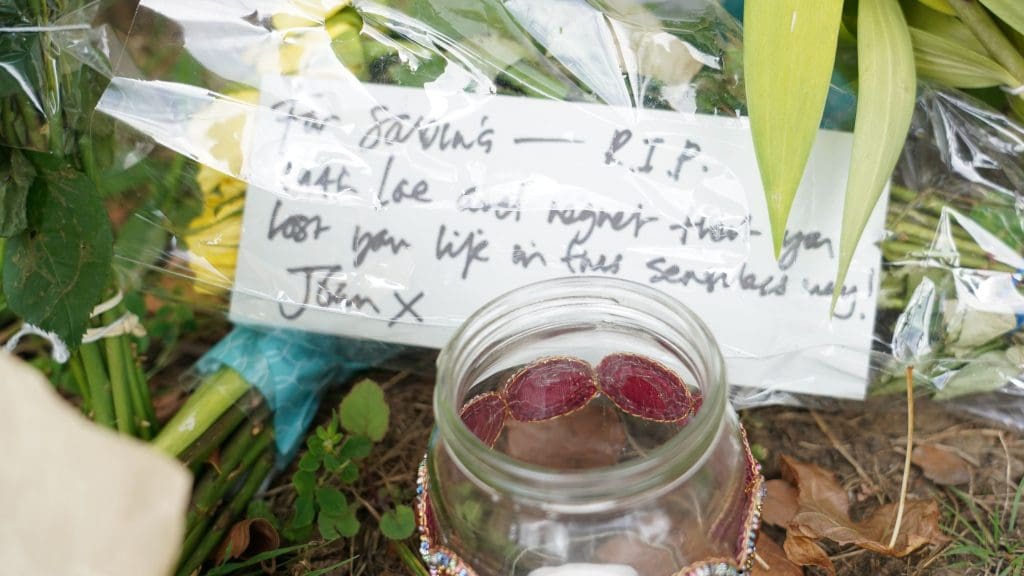 For Sabina — R.I.P.
with love and regret that you
lost your life in this senseless way!
Joan X